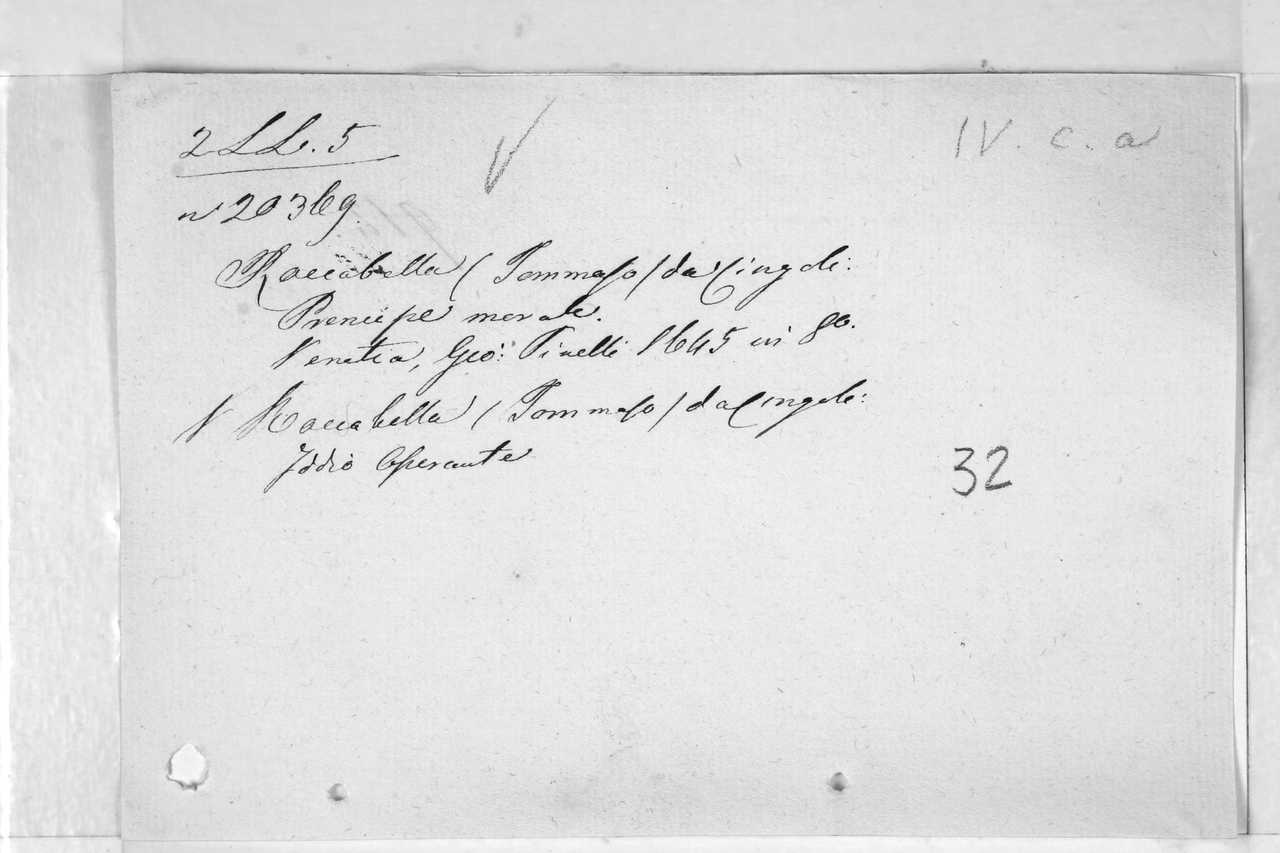 2 LL. 5
IV. c. a
n 20369.
Roccabella (Tommaso) da Cingoli:
Prencipe morale.
Venetia, Gio: Pinelli 1645 in 8o.
N Roccabella (Tommaso) da Cingoli:
Iddio Operante
32